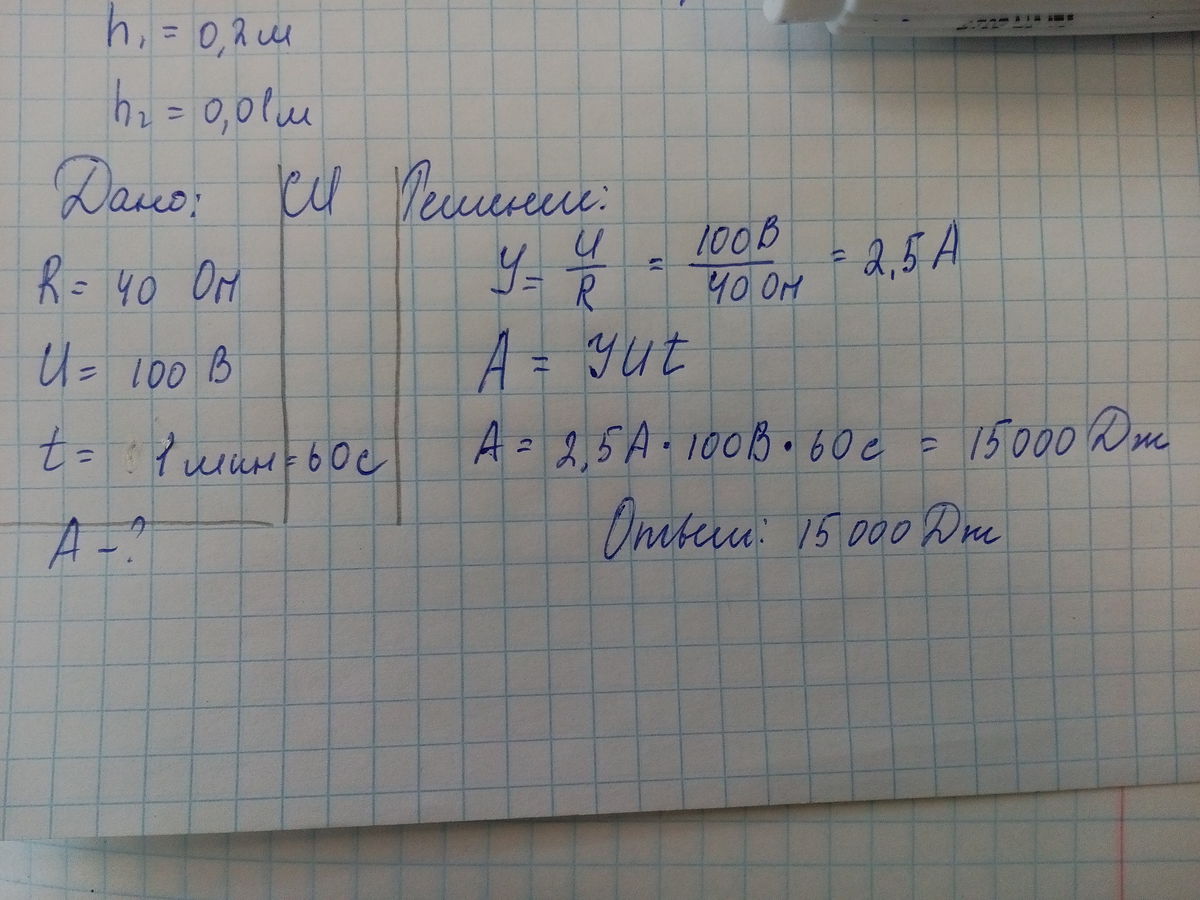 h₁ = 0,2 м
h₂ = 0,01 м
Дано: СИ Решение:
R = 40 Ом
U = 100 В
t = 1 мин = 60 с
A - ?
У = U/R = 100 В/40 Ом = 2,5 А
A = УUt
A = 2,5 А · 100 В · 60 с = 15000 Дж
Ответ: 15 000 Дж